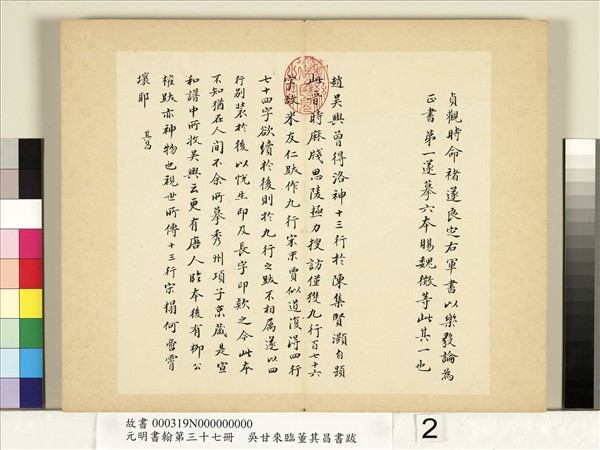 貞觀時命褚遂良定右軍書以樂毅論為
正書第一遂摹六本賜魏徵等此其一也
趙吳興曾得洛神十三行於陳集賢灝自題
此晉時麻牋思陵極力搜訪僅獲九行百七十六
字故米友仁跋作九行宋末賈似道復得四行
七十四字欲續於後則於九行之跋不相屬遂以四
行別裝於後以悅生印及長字印款之今此本
不知猶在人間不余所摹秀州項子京藏是宣
和譜中所收吳興云更有唐人臨本後有柳公
權跋亦神物也視世所傳十三行宋榻何啻霄
壤耶 其昌
故書 000319N000000000
元明書翰第三十七冊 吳甘來臨董其昌書跋
2